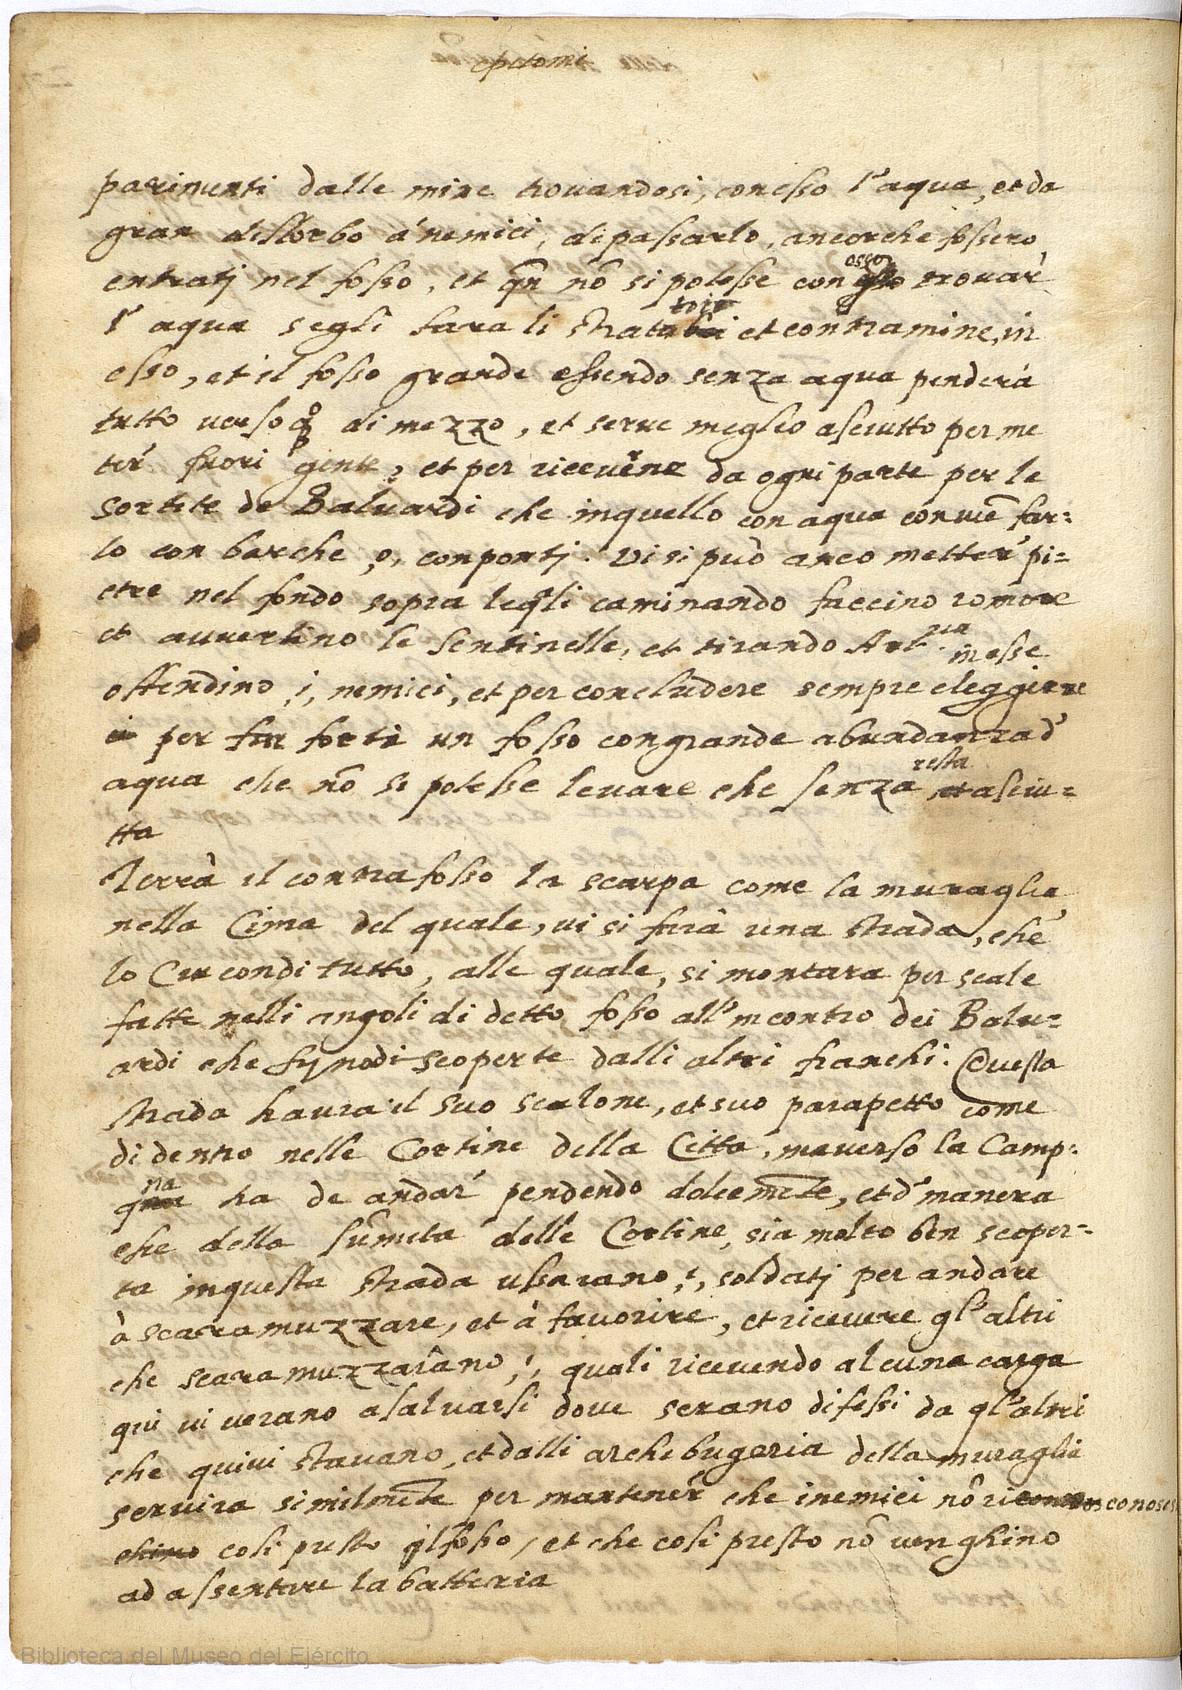 epitomi
parimenti dalle mine trouandosi, con esso l'aqua, et da
gran disstorbo a nemici, di passarlo, ancorche fossero
entratj nel fosso, et qn nõ si potesse con esso trouar
l'aqua segli fara li strata toij et contramine, in
esso, et il fosso grande essendo senza aqua penderà
tutto uerso q̃ di mezzo, et serue meglio asciutto per me
ter fuori gente, et per riceuerne da ogni parte per le
sortite de Baluardi che inquello con aqua conuiẽ far=
lo con barche, o, conpontj. Vi si può anco metter pi=
etre nel fondo sopra leq̃li caminando faccino romore
et auuertino le sentinelle, et tirando Art.ria in esse
offendino, i, nemici, et per concludere sempre eleggierei
per far forte un fosso congrande abundanza d'
aqua che nõ si potesse leuare che senza resta asciu=
tta
Terrà il contrafosso la scarpa come la muraglia
nella Cima del quale, ui si farà una strada, che
lo Circondi tutto, alle quale, si montara per scale
fatte nelli angoli di detto fosso all'incontro dei Balu=
ardi che syno di scoperte dalli altri fianchi. Questa
strada haura il suo scalone, et suo parapetto come
di dentro nelle Cortine della Citta, mauerso la Camp=
na ha de andar pendendo dolcemẽte, et d'manera
che della sũmita delle Cortine, sia molto ben scoper=
ta inquesta strada ussarano, i, soldatj per andare
à scaramuzzare, et à fauorire, et riceuere gl'altri
che scaramuzzarano, i, quali riceuendo alcuna carga
qui ui uerano a saluarsi doue serano difessi da gl'altri
che quiui stauano, et dalli archibugeria della muraglia
seruira similmẽte per mantener che inemici nõ riconosc
cosi presto il fosso, et che cosi presto nõ uenghino
ad assentare la batteria
Biblioteca del Museo del Ejército